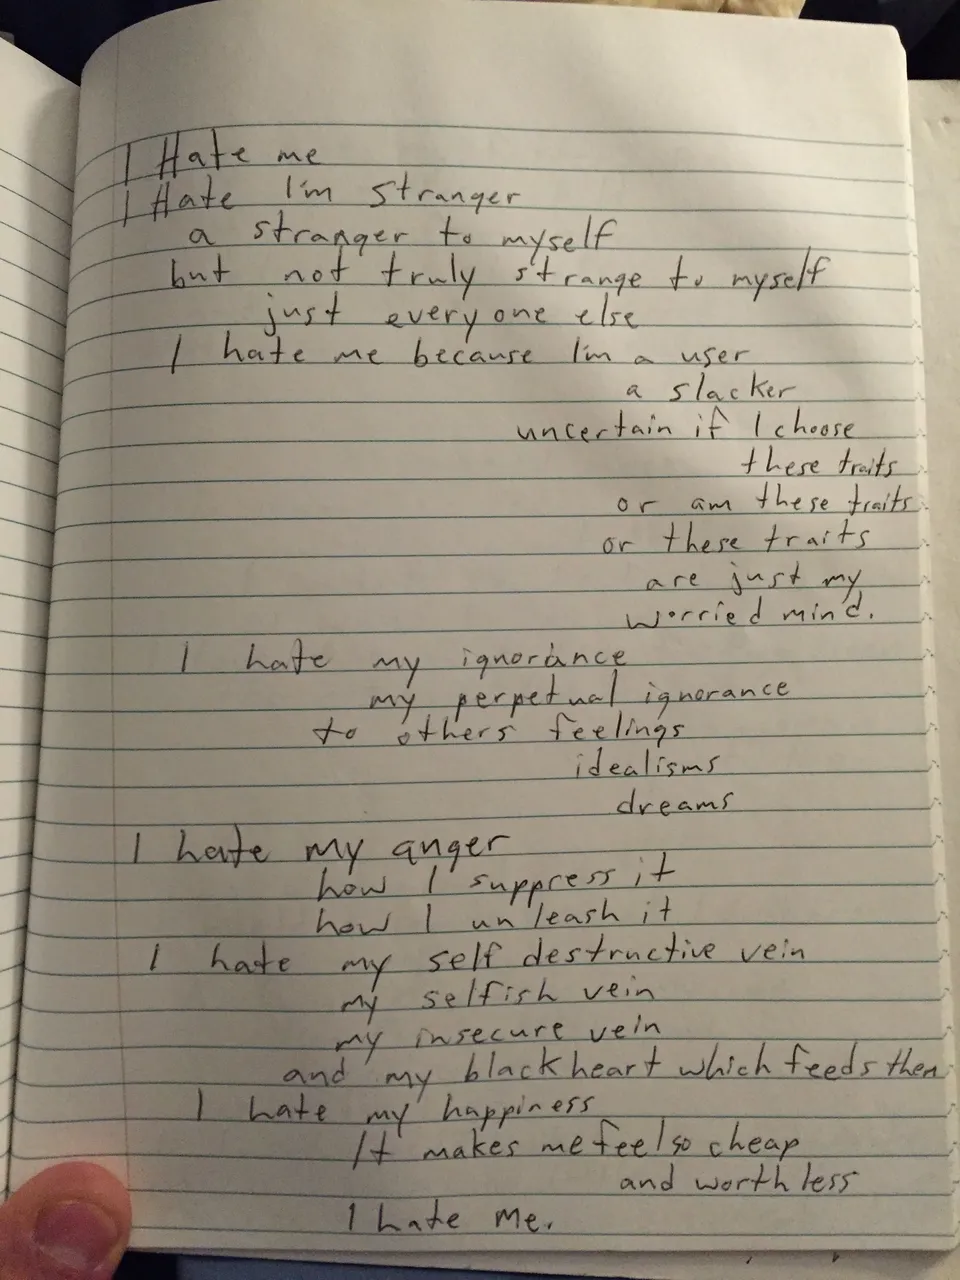 I Hate me
I Hate I'm stranger
a stranger to myself
but not truly strange to myself
just everyone else
I hate me because I'm a user
a slacker
uncertain if I choose
these traits
or am these traits
or these traits
are just my
worried mind.
I hate my ignorance
my perpetual ignorance
to others feelings
idealisms
dreams
I hate my anger
how I suppress it
how I unleash it
I hate my self destructive vein
my selfish vein
my insecure vein
and my black heart which feeds them
I hate my happiness
It makes me feel so cheap
and worthless
I hate me.